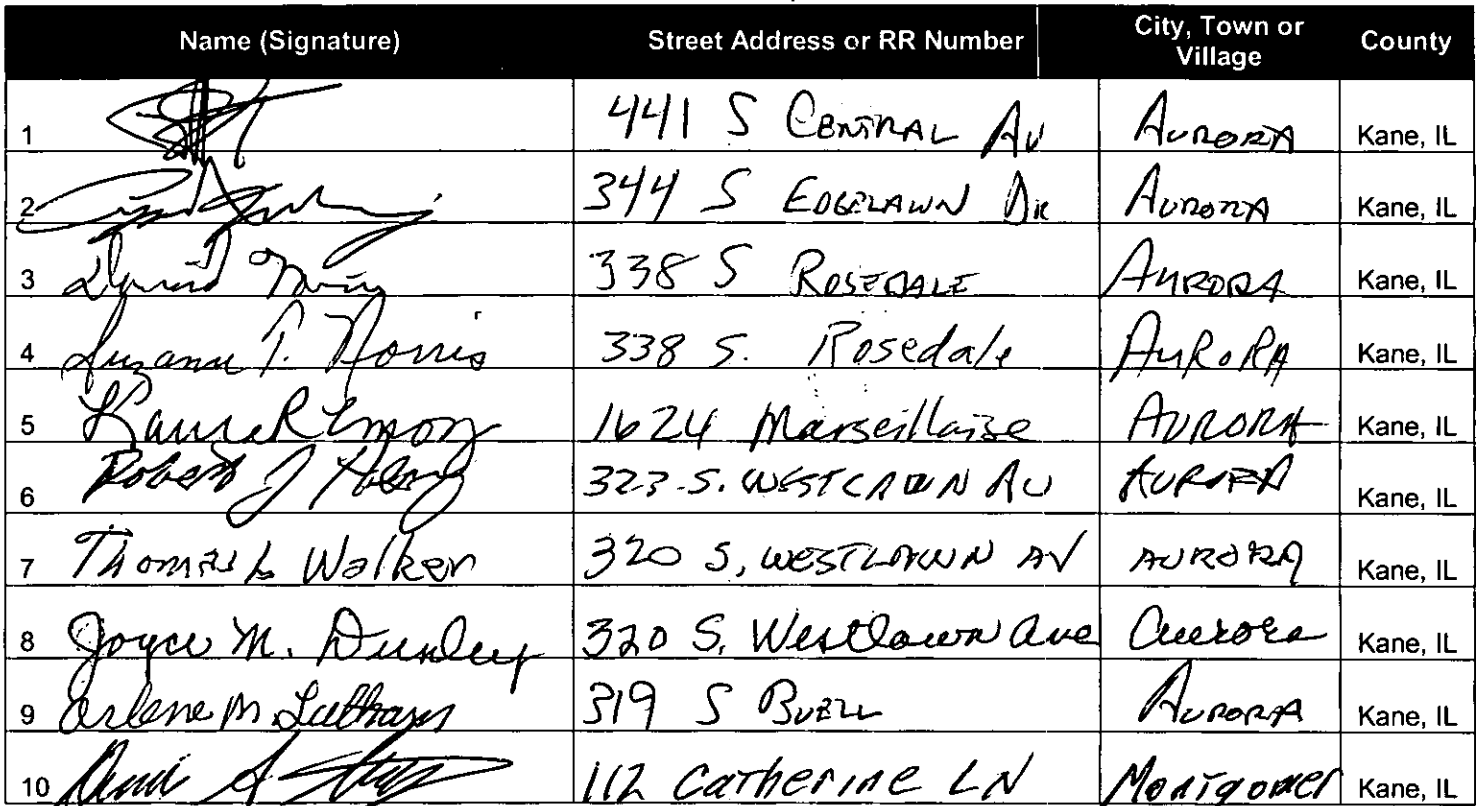 Name (Signature) Street Address or RR Number City, Town or Village County
1 441 S CENTRAL AV AURORA Kane, IL
2 344 S EDGELAWN DR AURORA Kane, IL
3 David 338 S ROSEDALE AURORA Kane, IL
4 Suzanne P. Norris 338 S. Rosedale AURORA Kane, IL
5 Laura R 1624 Marseillaise AURORA Kane, IL
6 Robert J 323 S. WESTLAWN AV AURORA Kane, IL
7 Thomas L Walker 320 S, WESTLAWN AV AURORA Kane, IL
8 Joyce M. 320 S. Westlawn ave Aurora Kane, IL
9 Arlene M. 319 S BUELL AURORA Kane, IL
10 112 Catherine LN Montgomer Kane, IL